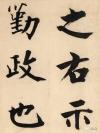 之右示
勤政也